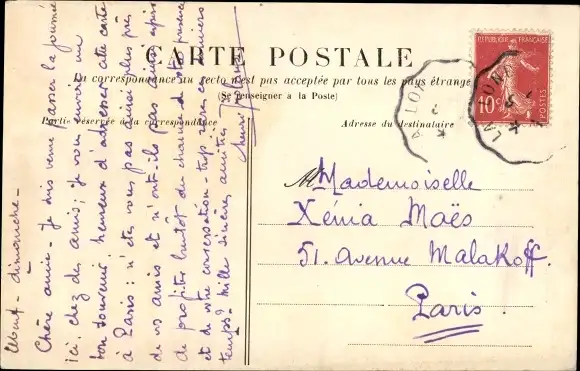 CARTE POSTALE
La correspondance au recto n'est pas acceptée par tous les pays étrange
(Se renseigner à la Poste)
Partie réservée à la correspondance
Adresse du destinataire
REPUBLIQUE FRANÇAISE
10c
POSTES
Mademoiselle
Xénia Maës
51. avenue Malakoff.
Paris.
dimanche -
Chère amie - Je suis venu passer la journée
ici, chez des amis; je vous envoie un
bon souvenir, heureux d'adresser cette carte
à Paris: n'êtes vous pas ainsi plus près
de vos amis et n'ont-ils pas ainsi espoir
de profiter bientôt du charme de votre présence
et de votre conversation - trop rares ces derniers
temps? Mille sincères amitiés